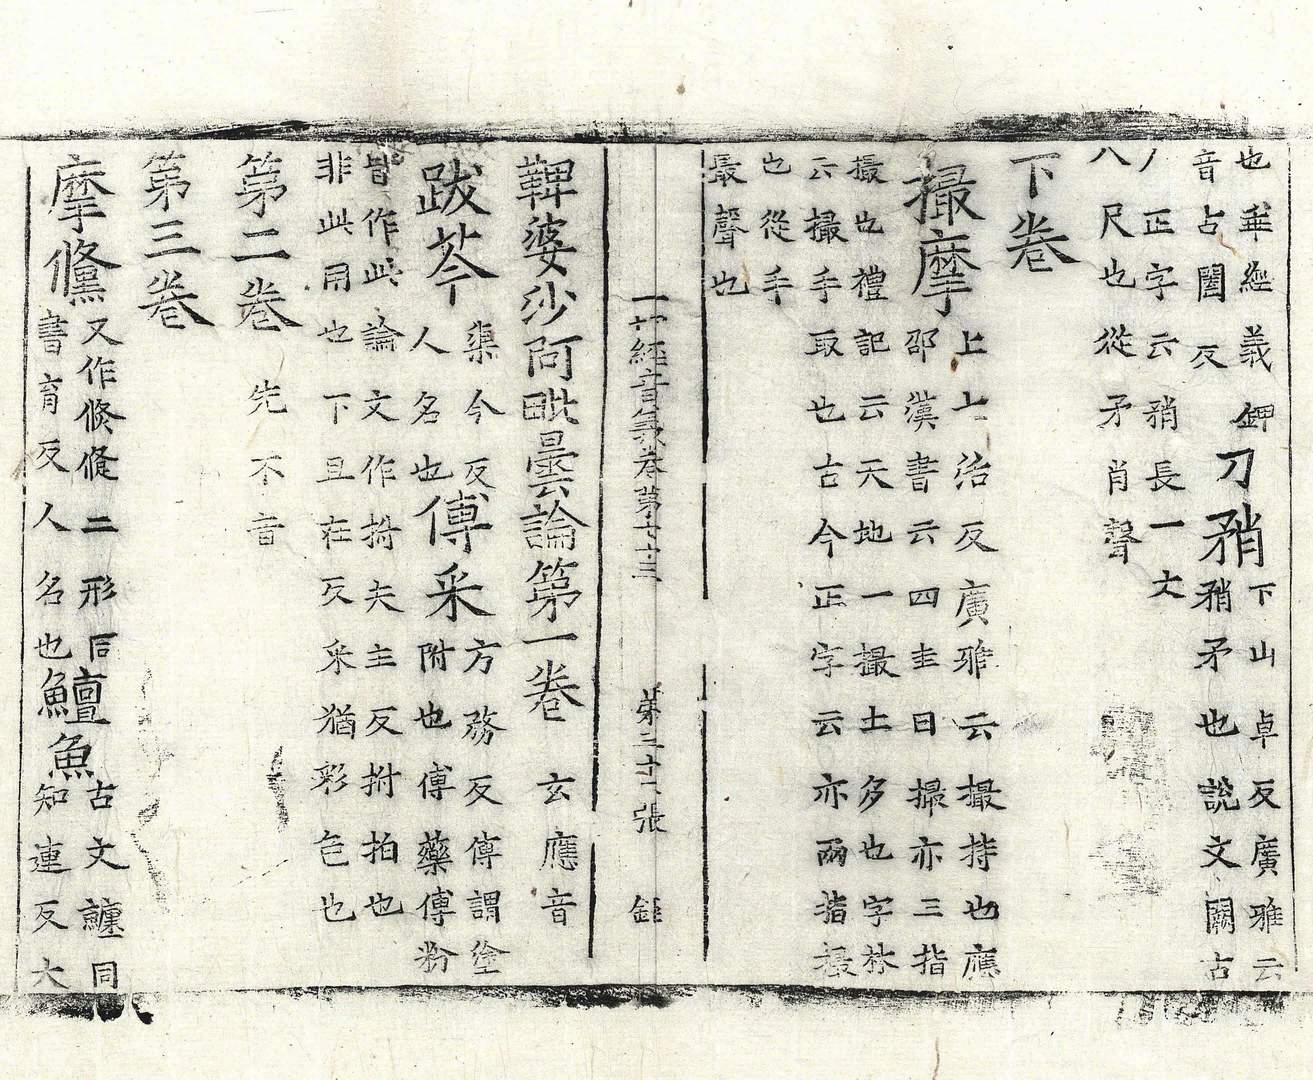 也垂經義鉀
音占闔反
刀矟
下山卓反廣雅云
矟矛也說文闕古
丿正字云矟長一丈
八尺也從矛肖聲
下卷
撮摩
上七活反廣雅云撮持也應
邵漢書云四圭曰撮亦三指
撮也禮記云天地一撮土多也字林
云撮手取也古今正字云亦兩指撮
也從手
最聲也
一切經音義卷第七十三 第三十六張
鞞婆沙阿毗曇論第一卷 玄應音
跋芩
渠今反
人名也
傅采
方務反傅謂塗
附也傅藥傅粉
皆作此論文作拊夫主反拊拍也
非此用也下且在反采猶彩色也
第二卷 先不音
第三卷
摩儵
又作倏倐二形同
書育反人名也
鱣魚
古文䱇同
知連反大